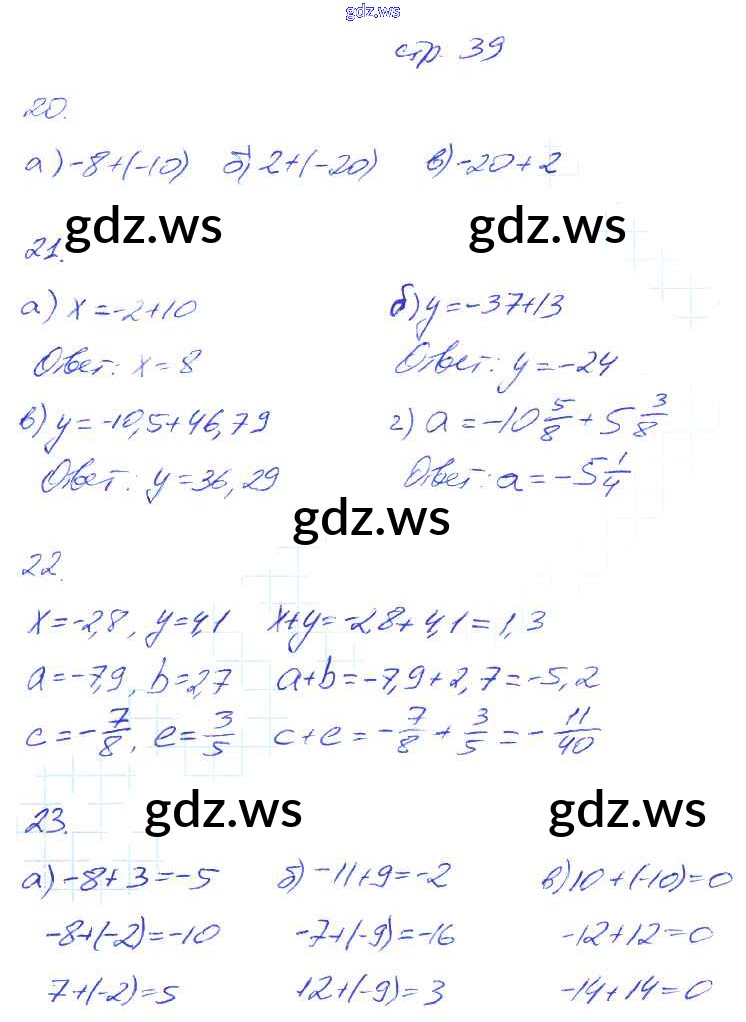 gdz.ws
стр. 39
20.
а) -8+(-10) б) 2+(-20) в) -20+2
gdz.ws gdz.ws
21.
а) x = -2+10 б) y = -37+13
Ответ: x = 8 Ответ: y = -24
в) y = -10,5+46,79 г) a = -10 5/8 + 5 3/8
Ответ: y = 36,29 Ответ: a = -5 1/4
gdz.ws
22.
x = -2,8, y = 4,1 x+y = -2,8+4,1 = 1,3
a = -7,9, b = 2,7 a+b = -7,9+2,7 = -5,2
c = -7/8, e = 3/5 c+e = -7/8 + 3/5 = -11/40
gdz.ws gdz.ws
23.
а) -8+3=-5 б) -11+9=-2 в) 10+(-10)=0
-8+(-2)=-10 -7+(-9)=-16 -12+12=0
7+(-2)=5 12+(-9)=3 -14+14=0